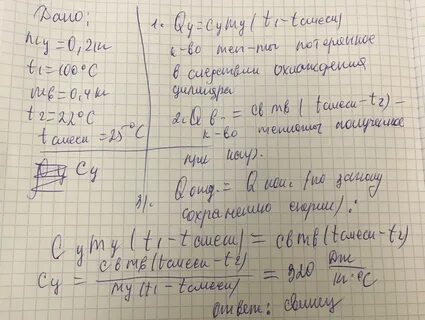 Дано:
mц = 0,2кг
t₁ = 100°C
mв = 0,4кг
t₂ = 22°C
tсмеси = 25°C
Cц
1. Qц = Cц mц (t₁ - tсмеси)
к-во теп-ты потерянное
в следствии охлаждения
цилиндра
2. Qв = cв mв (tсмеси - t₂) -
к-во теплоты полученное
при
3). Qотд. = Q (по закону
сохранению энергии):
Cц mц (t₁ - tсмеси) = cв mв (tсмеси - t₂)
Cц = cв mв (tсмеси - t₂) / mц (t₁ - tсмеси) = Дж / кг·°C
ответ: свинец